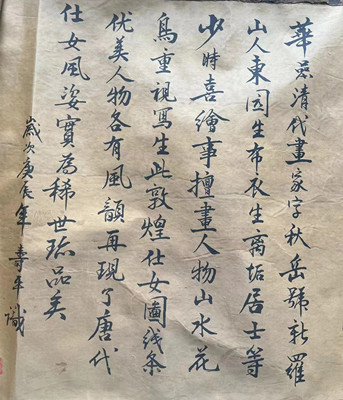 華嵒清代畫家字秋岳號新羅
山人東园生布衣生離垢居士等
少時喜繪事擅畫人物山水花
鳥重視寫生此敦煌仕女圖线条
优美人物各有風韻再現了唐代
仕女風姿實為稀世珍品矣
歲次庚辰年壽牛識